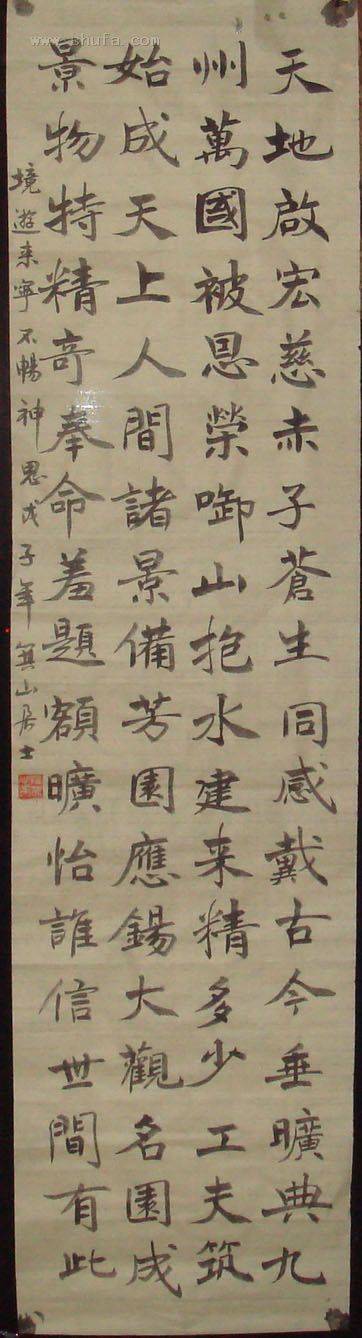 天地啟宏慈赤子蒼生同感戴古今垂曠典九
州萬國被恩榮啣山抱水建来精多少工夫筑
始成天上人間諸景備芳園應錫大觀名園成
景物特精奇奉命羞題額曠怡誰信世間有此
境遊来寧不暢神思戊子年無山居士
www.shufa.com